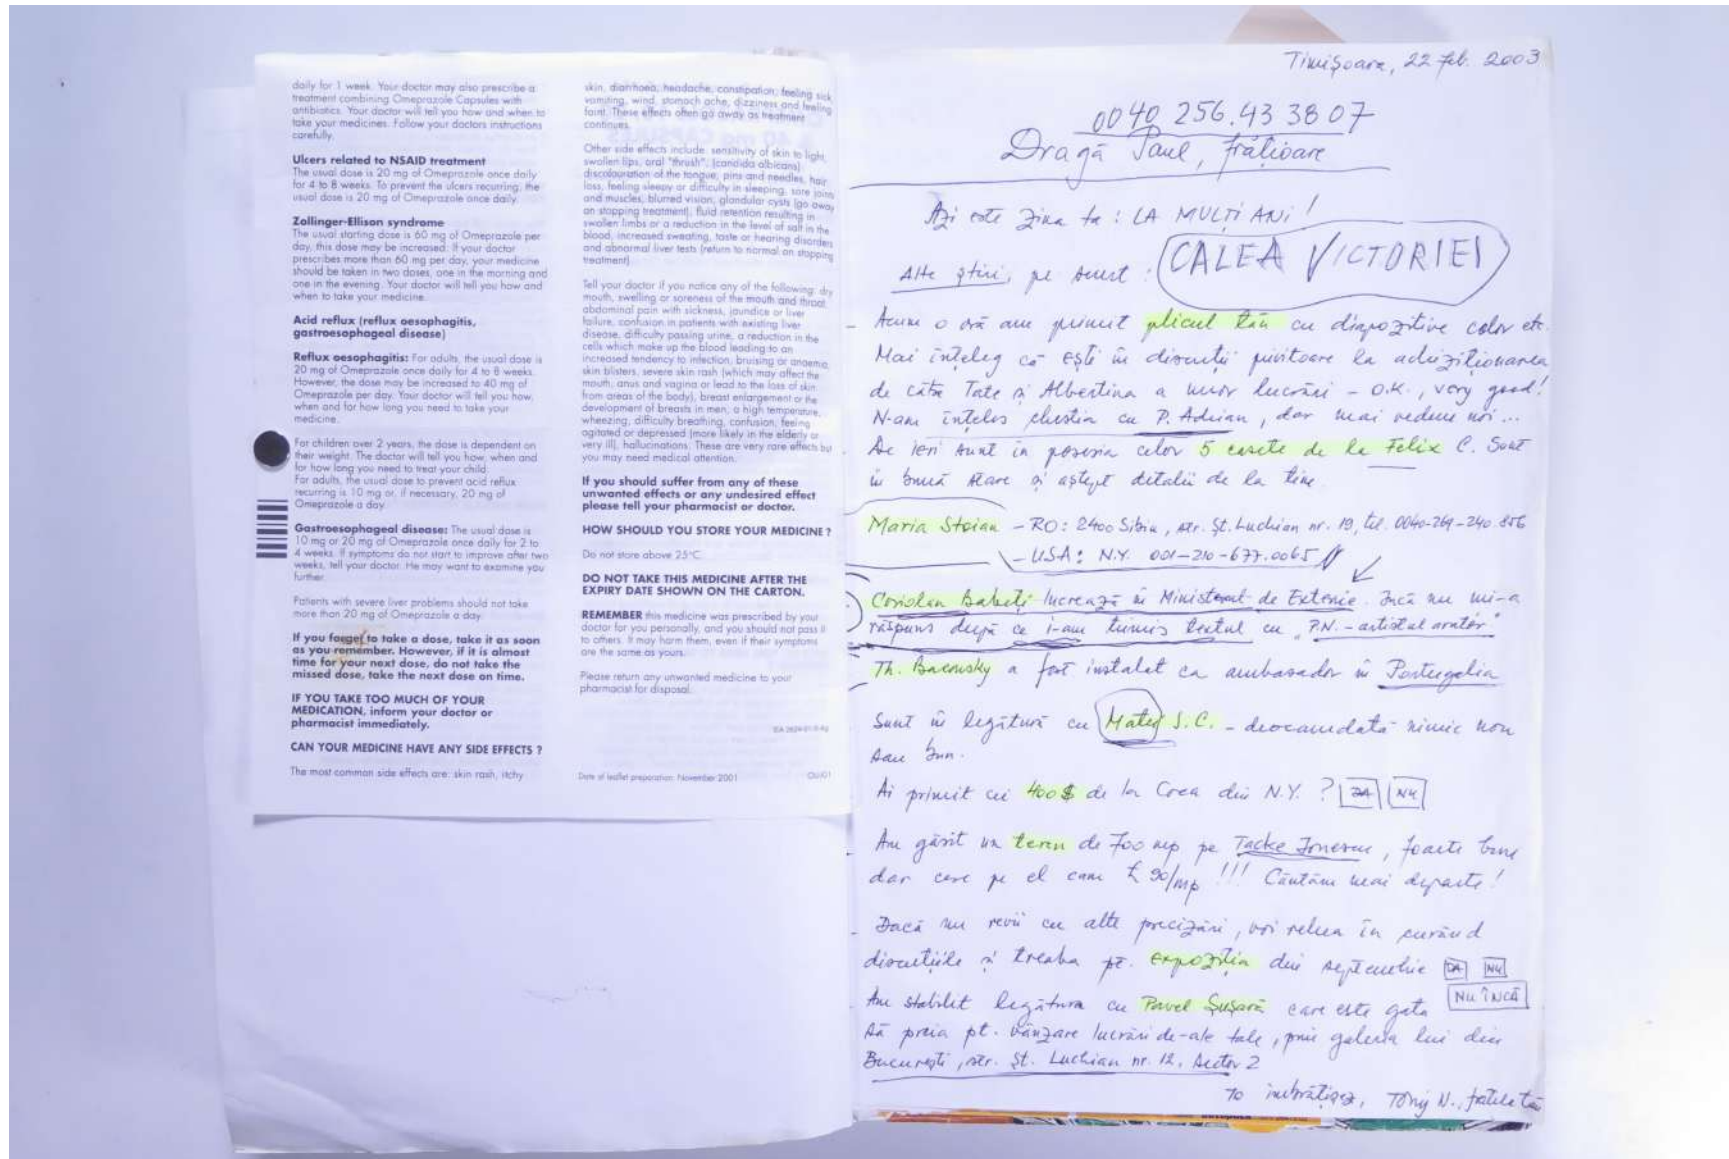 daily for 1 week. Your doctor may also prescribe a
treatment combining Omeprazole Capsules with
antibiotics. Your doctor will tell you how and when to
take your medicines. Follow your doctors instructions
carefully.
Ulcers related to NSAID treatment
The usual dose is 20 mg of Omeprazole once daily
for 4 to 8 weeks. To prevent the ulcers recurring, the
usual dose is 20 mg of Omeprazole once daily.
Zollinger-Ellison syndrome
The usual starting dose is 60 mg of Omeprazole per
day, this dose may be increased. If your doctor
prescribes more than 60 mg per day, your medicine
should be taken in two doses, one in the morning and
one in the evening. Your doctor will tell you how and
when to take your medicine.
Acid reflux (reflux oesophagitis,
gastroesophageal disease)
Reflux oesophagitis: For adults, the usual dose is
20 mg of Omeprazole once daily for 4 to 8 weeks.
However, the dose may be increased to 40 mg of
Omeprazole per day. Your doctor will tell you how,
when and for how long you need to take your
medicine.
For children over 2 years, the dose is dependent on
their weight. The doctor will tell you how, when and
for how long you need to treat your child.
For adults, the usual dose to prevent acid reflux
recurring is 10 mg or, if necessary, 20 mg of
Omeprazole a day.
Gastroesophageal disease: The usual dose is
10 mg or 20 mg of Omeprazole once daily for 2 to
4 weeks. If symptoms do not start to improve after two
weeks, tell your doctor. He may want to examine you
further.
Patients with severe liver problems should not take
more than 20 mg of Omeprazole a day.
If you forget to take a dose, take it as soon
as you remember. However, if it is almost
time for your next dose, do not take the
missed dose, take the next dose on time.
IF YOU TAKE TOO MUCH OF YOUR
MEDICATION, inform your doctor or
pharmacist immediately.
CAN YOUR MEDICINE HAVE ANY SIDE EFFECTS ?
The most common side effects are: skin rash, itchy
skin, diarrhoea, headache, constipation, feeling sick,
vomiting, wind, stomach ache, dizziness and feeling
faint. These effects often go away as treatment
continues.
Other side effects include: sensitivity of skin to light,
swollen lips, oral "thrush", (candida albicans)
discolouration of the tongue, pins and needles, hair
loss, feeling sleepy or difficulty in sleeping, sore joints
and muscles, blurred vision, glandular cysts (go away
on stopping treatment), fluid retention resulting in
swollen limbs or a reduction in the level of salt in the
blood, increased sweating, taste or hearing disorders
and abnormal liver tests (return to normal on stopping
treatment).
Tell your doctor if you notice any of the following: dry
mouth, swelling or soreness of the mouth and throat,
abdominal pain with sickness, jaundice or liver
failure, confusion in patients with existing liver
disease, difficulty passing urine, a reduction in the
cells which make up the blood leading to an
increased tendency to infection, bruising or anaemia,
skin blisters, severe skin rash (which may affect the
mouth, anus and vagina or lead to the loss of skin
from areas of the body), breast enlargement or the
development of breasts in men, a high temperature,
wheezing, difficulty breathing, confusion, feeling
agitated or depressed (more likely in the elderly or
very ill), hallucinations. These are very rare effects but
you may need medical attention.
If you should suffer from any of these
unwanted effects or any undesired effect
please tell your pharmacist or doctor.
HOW SHOULD YOU STORE YOUR MEDICINE ?
Do not store above 25°C.
DO NOT TAKE THIS MEDICINE AFTER THE
EXPIRY DATE SHOWN ON THE CARTON.
REMEMBER this medicine was prescribed by your
doctor for you personally, and you should not pass it
to others. It may harm them, even if their symptoms
are the same as yours.
Please return any unwanted medicine to your
pharmacist for disposal.
Date of leaflet preparation: November 2001
Timişoara, 22 feb. 2003
0040 256.43 38 07
Dragă Paul, frăţioare
Azi este ziua ta : LA MULŢI ANI !
Alte ştiri, pe scurt : CALEA VICTORIEI
- Acum o oră am primit plicul tău cu diapozitive color etc.
Mai înţeleg că eşti în discuţii privitoare la achiziţionarea
de către Tate şi Albertina a unor lucrări - O.K., very good!
N-am înţeles chestia cu P. Adrian, dar mai vedem noi...
- De ieri sunt în posesia celor 5 casete de la Felix C. Sunt
în bună stare şi aştept detalii de la tine.
Maria Stoian - RO: 2400 Sibiu, str. Şt. Luchian nr. 19, tel. 0040-269-240.856
- USA: N.Y. 001-210-677.0065
Coriolan Babeţi lucrează în Ministerul de Externe. Încă nu mi-a
răspuns după ce i-am trimis textul cu "P.N. - artistul arător"
Th. Baconsky a fost instalat ca ambasador în Portugalia
Sunt în legătură cu Matei S.C. - deocamdată nimic nou
sau bun.
Ai primit cei 400 $ de la Corea din N.Y. ? DA NU
- Am găsit un teren de 700 mp pe Tacke Ionescu, foarte bun
dar cere pe el cam £ 90/mp !!! Căutăm mai departe!
- Dacă nu revii cu alte precizări, voi relua în curând
discuţiile şi treaba pt. expoziţia din septembrie DA NU
NU ÎNCĂ
- Am stabilit legătura cu Pavel Şuşară care este gata
să preia pt. vânzare lucrări de-ale tale, prin galeria lui din
Bucureşti, str. Şt. Luchian nr. 12, Sector 2
Te îmbrăţişez, Tony N., fratele tău